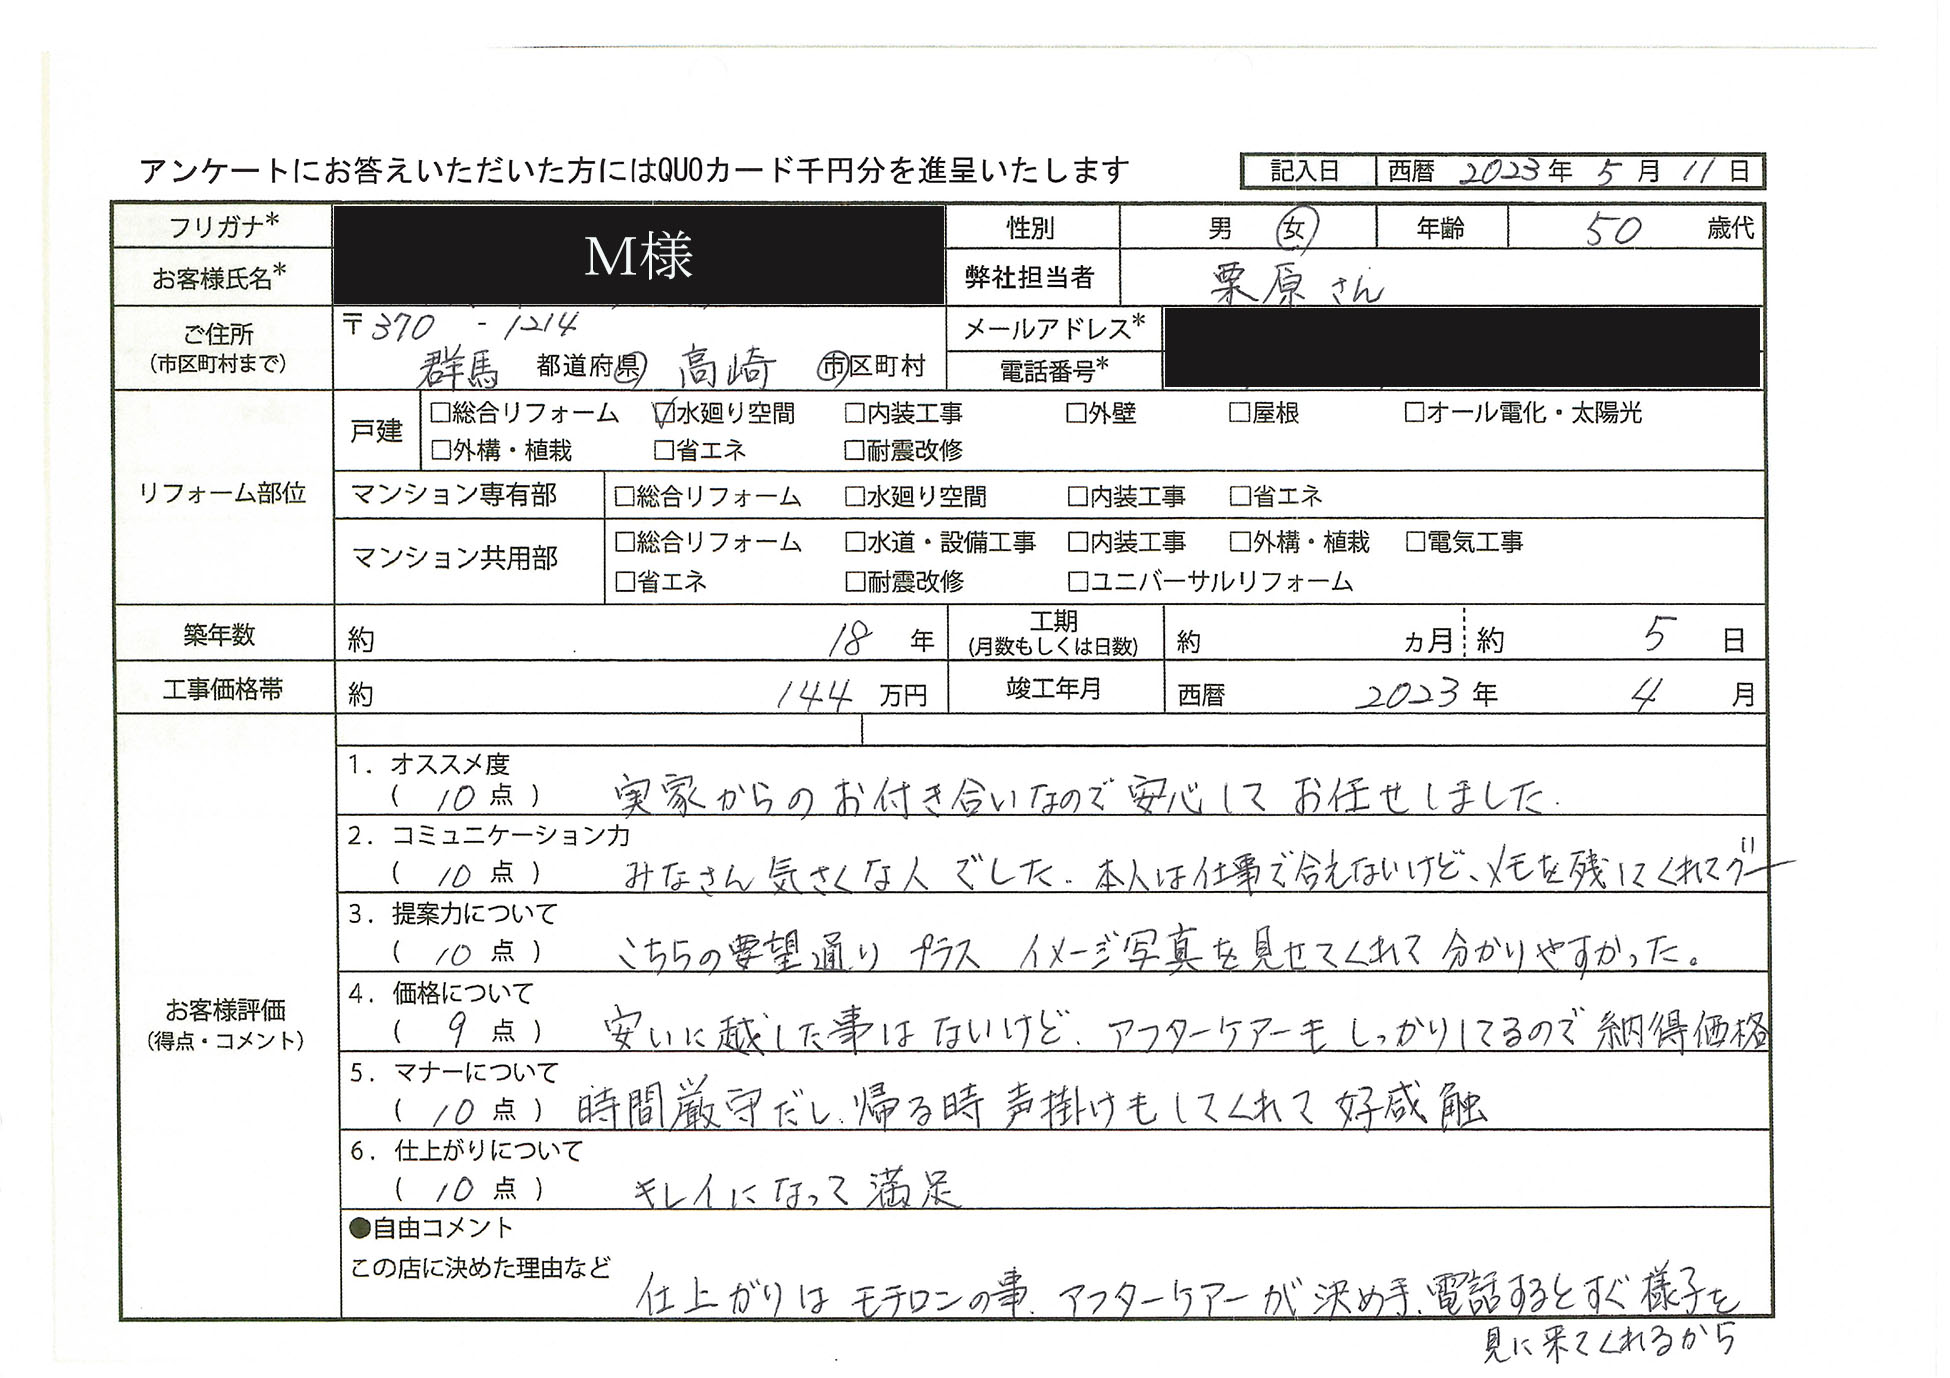 アンケートにお答えいただいた方にはQUOカード千円分を進呈いたします
記入日 西暦 2023 年 5 月 11 日
フリガナ* M様 性別 男 女 年齢 50 歳代
お客様氏名* 弊社担当者 栗原さん
ご住所 (市区町村まで) 〒370 - 1214 メールアドレス*
群馬 都道府県 高崎 市区町村 電話番号*
リフォーム部位
戸建 □総合リフォーム ☑水廻り空間 □内装工事 □外壁 □屋根 □オール電化・太陽光
□外構・植栽 □省エネ □耐震改修
マンション専有部 □総合リフォーム □水廻り空間 □内装工事 □省エネ
マンション共用部 □総合リフォーム □水道・設備工事 □内装工事 □外構・植栽 □電気工事
□省エネ □耐震改修 □ユニバーサルリフォーム
築年数 約 18 年 工期 (月数もしくは日数) 約 ヵ月 約 5 日
工事価格帯 約 144 万円 竣工年月 西暦 2023 年 4 月
お客様評価
(得点・コメント)
1．オススメ度
( 10 点 ) 実家からのお付き合いなので安心してお任せしました.
2．コミュニケーション力
( 10 点 ) みなさん気さくな人でした. 本人は仕事で合えないけど、メモを残してくれてグー
3．提案力について
( 10 点 ) こちらの要望通り プラス イメージ写真を見せてくれて分かりやすかった。
4．価格について
( 9 点 ) 安いに越した事はないけど、アフターケアーもしっかりしてるので納得価格
5．マナーについて
( 10 点 ) 時間厳守だし、帰る時声掛けもしてくれて好感触
6．仕上がりについて
( 10 点 ) キレイになって満足
●自由コメント
この店に決めた理由など
仕上がりはモチロンの事、アフターケアーが決め手、電話するとすぐ様子を
見に来てくれるから